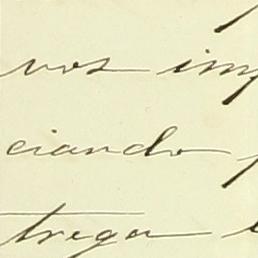 vos imp
ciando
trega